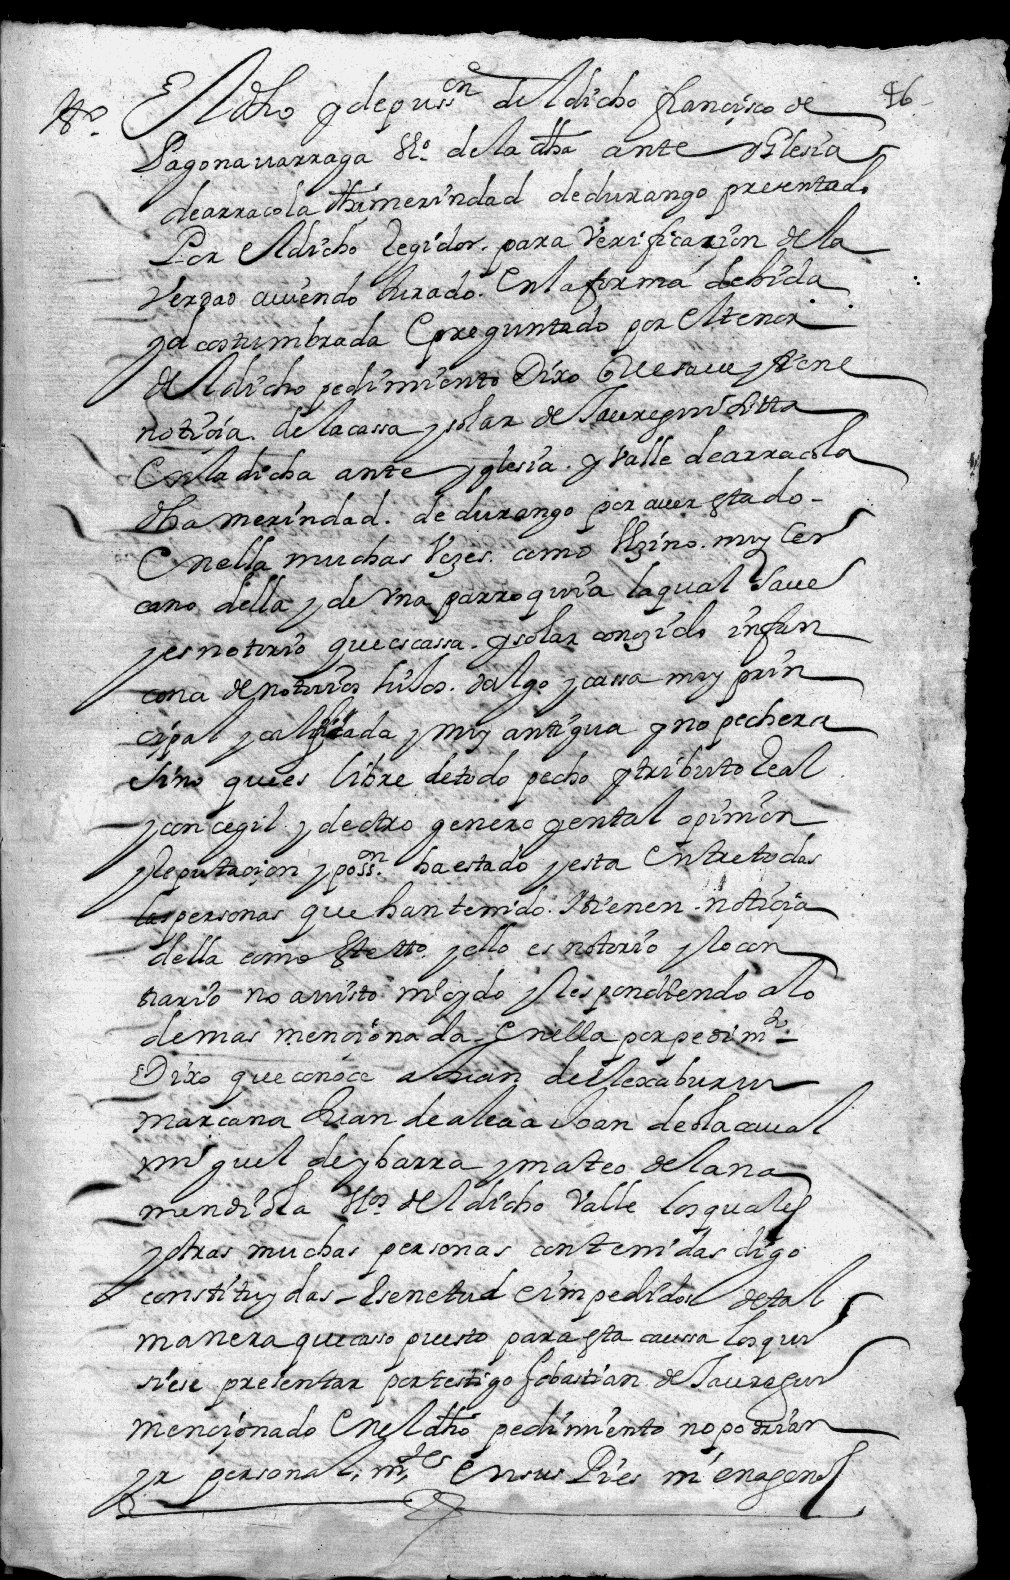 46
tº. El dho y depusson del dicho francisco de
Pagonavarraga Vº. de la dha ante yglesia
de arracola dha merindad de durango presentado
Por el dicho Regidor. para Verificazion de la
Verdad aviendo Jurado. En la forma debida
y acostumbrada E preguntado por el tenor
del dicho pedimiento Dixo Que save y tiene
noticia. de la cassa y solar de Jauregui
En la dicha ante yglesia. y Valle de arracola
dha merindad. de durango por aver estado-
En ella muchas Vezes. como Vezino. muy Cer
cano della y de Vna parroquia la qual Save
y es notorio que es cassa. y solar conozido infan
cona de notorios hijos. dalgo y cassa muy prin
cipal y calificada y muy antigua y no pechera
sino que es libre de todo pecho y tributo Real
y concegil y de otro genero y en tal opinion
y Reputacion y posson. ha estado y esta Entre todas
las personas que han tenido. y tienen noticia
della como este tº. y ello es notorio y lo con
trario no a visto ni oydo y Respondiendo a lo
demas mencionada En ella por pedimto.
Dixo que conoce a Juan de
marcana Juan de alcaa Joan de olacaval
miguel de ybarra y mateo de lana
mendiola Vºs. del dicho Valle los quales
y otras muchas personas contenidas digo
constituydas - senetud e impedidos de tal
manera que caso puesto para esta caussa los qui
siese presentar por testigo Sebastian de Jauregui
mencionado En el dho pedimiento no podrian
yr personalmte. En sus Pies ni en agenos